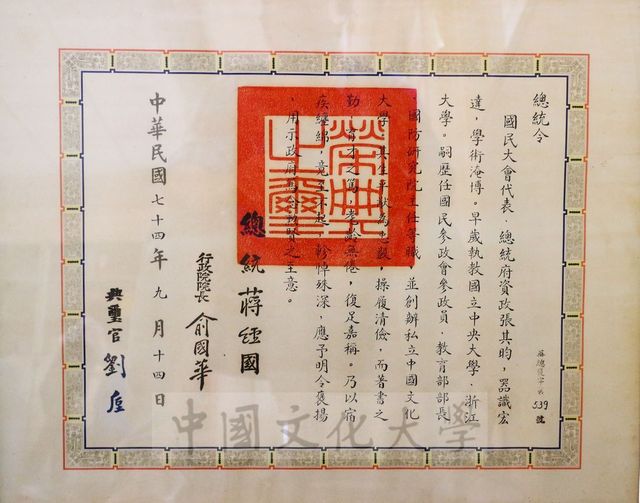 總統令
國民大會代表、總統府資政張其昀，器識宏
達，學術淹博。早歲執教國立中央大學、浙江
大學。嗣歷任國民參政會參政員、教育部部長
、國防研究院主任等職，並創辦私立中國文化
大學。其生平猷為忠懇，操履清儉，而著書之
勤，育才之篤，耄齡無倦，復足嘉稱。乃以宿
疾纏綿，竟至不起，軫悼殊深，應予明令褒揚
，用示政府篤念勛賢之至意。
總統 蔣經國
行政院院長 俞國華
典璽官 劉垕
中華民國七十四年九月十四日
539 號
榮典之璽
中國文化大學